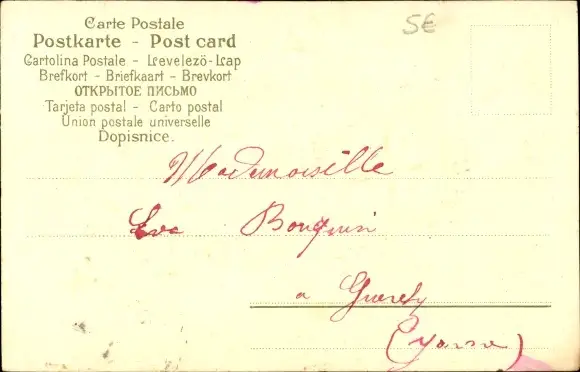 Carte Postale
Postkarte - Post card
Cartolina Postale - Levelező-Lap
Brefkort - Briefkaart - Brevkort
ОТКРЫТОЕ ПИСЬМО
Tarjeta postal - Carto postal
Union postale universelle
Dopisnice.
5€
Mademoiselle
Eva
a
(Yonne)